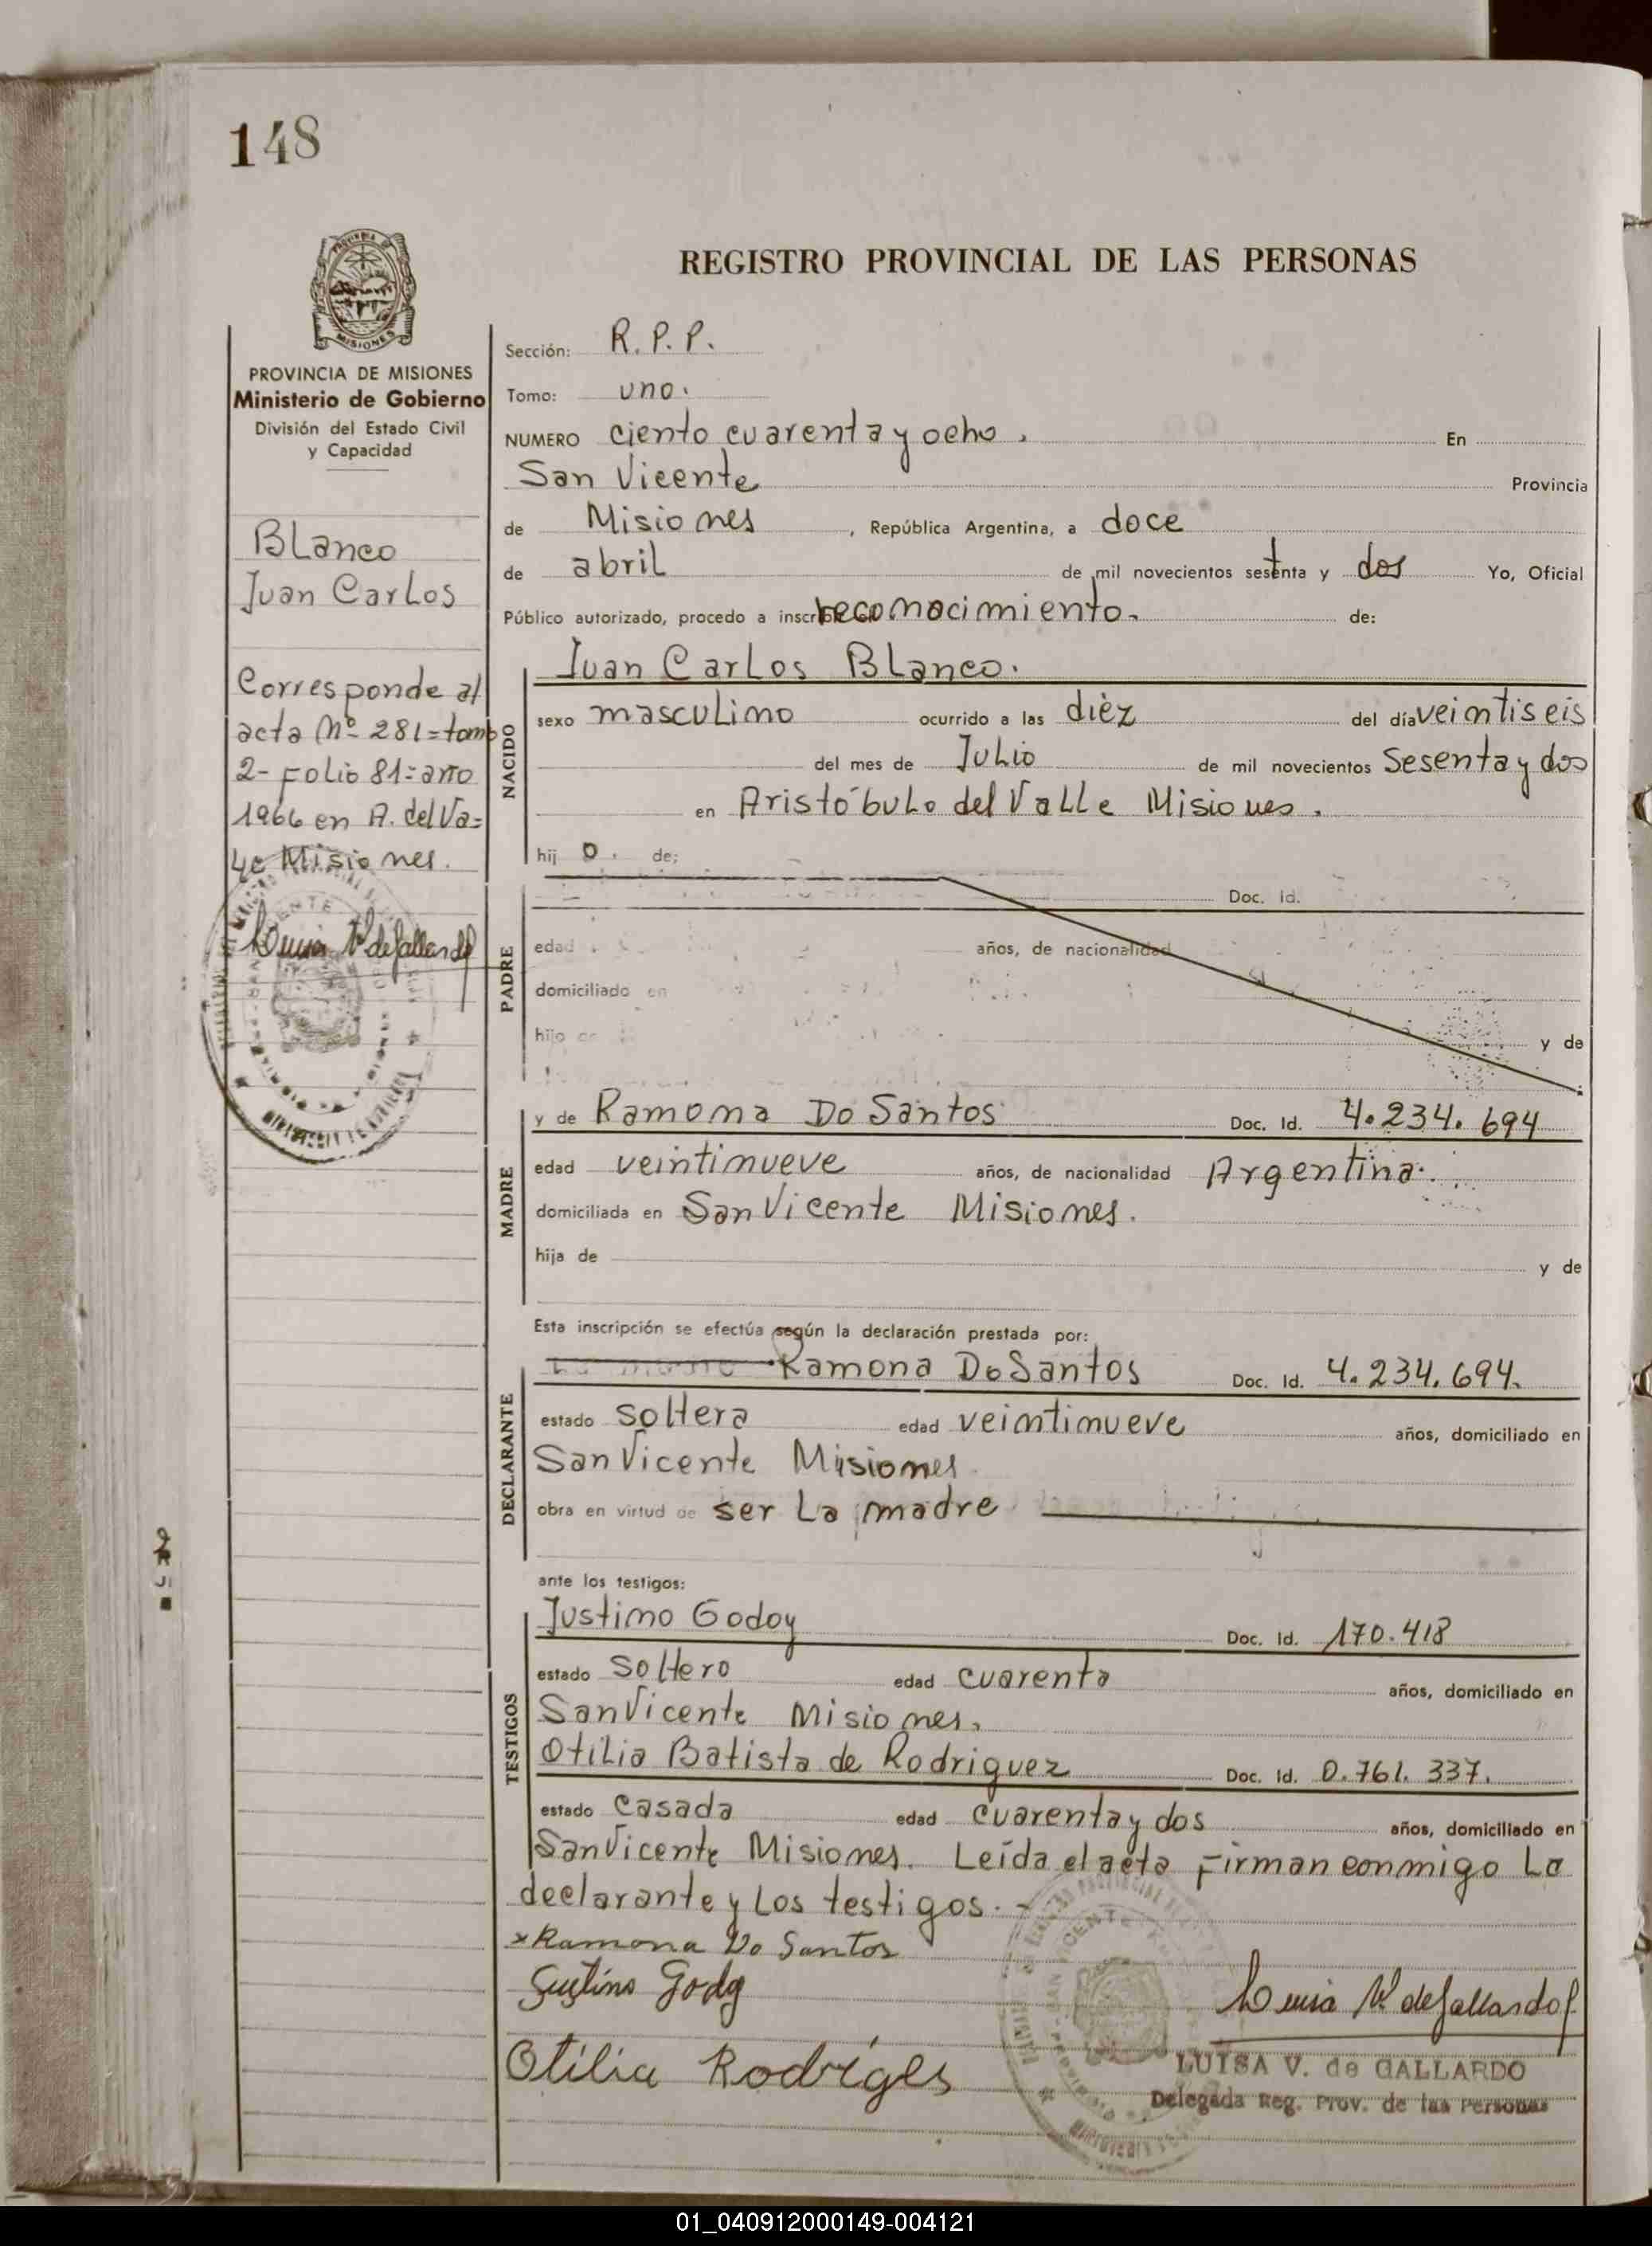 148
REGISTRO PROVINCIAL DE LAS PERSONAS
MISIONES
PROVINCIA DE MISIONES
Ministerio de Gobierno
División del Estado Civil
y Capacidad
Blanco
Juan Carlos
Corresponde al
acta Nº 281=tomo
2- Folio 81=año
1966 en A. del Va=
lle Misiones.
Luisa V. de Gallardo
Sección: R. P. P.
Tomo: uno.
NUMERO ciento cuarenta y ocho. En
San Vicente Provincia
de Misiones, República Argentina, a doce
de abril de mil novecientos setenta y dos Yo, Oficial
Público autorizado, procedo a inscribir reconocimiento. de:
NACIDO
Juan Carlos Blanco.
sexo masculino ocurrido a las diéz del día veintiseis
del mes de Julio de mil novecientos Sesenta y dos
en Aristóbulo del Valle Misiones.
hij o. de;
PADRE
Doc. Id.
edad años, de nacionalidad
domiciliado en
hijo de y de
MADRE
y de Ramona Do Santos Doc. Id. 4.234.694
edad veintinueve años, de nacionalidad Argentina.
domiciliada en San Vicente Misiones.
hija de y de
Esta inscripción se efectúa según la declaración prestada por:
DECLARANTE
Ramona Do Santos Doc. Id. 4.234.694.
estado soltera edad veintinueve años, domiciliado en
San Vicente Misiones
obra en virtud de ser la madre
ante los testigos:
TESTIGOS
Justino Godoy Doc. Id. 170.418
estado soltero edad cuarenta años, domiciliado en
San Vicente Misiones.
Otilia Batista de Rodriguez Doc. Id. 0.761.337.
estado casada edad cuarenta y dos años, domiciliado en
San Vicente Misiones. Leída el acta firman conmigo la
declarante y los testigos. -
x Ramona Do Santos
Justino Godoy
Luisa V. de Gallardo
Otilia Rodríges
LUISA V. de GALLARDO
Delegada Reg. Prov. de las Personas
01_040912000149-004121